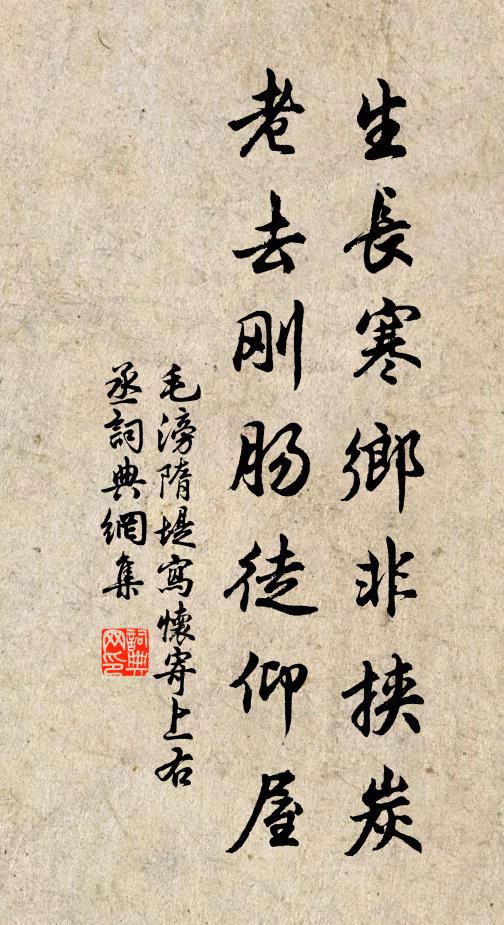 生長寒鄉非挾炭
老去刚肠徒仰屋
毛滂隋堤寫懷寄上右
丞詞典網集
詞典
网印